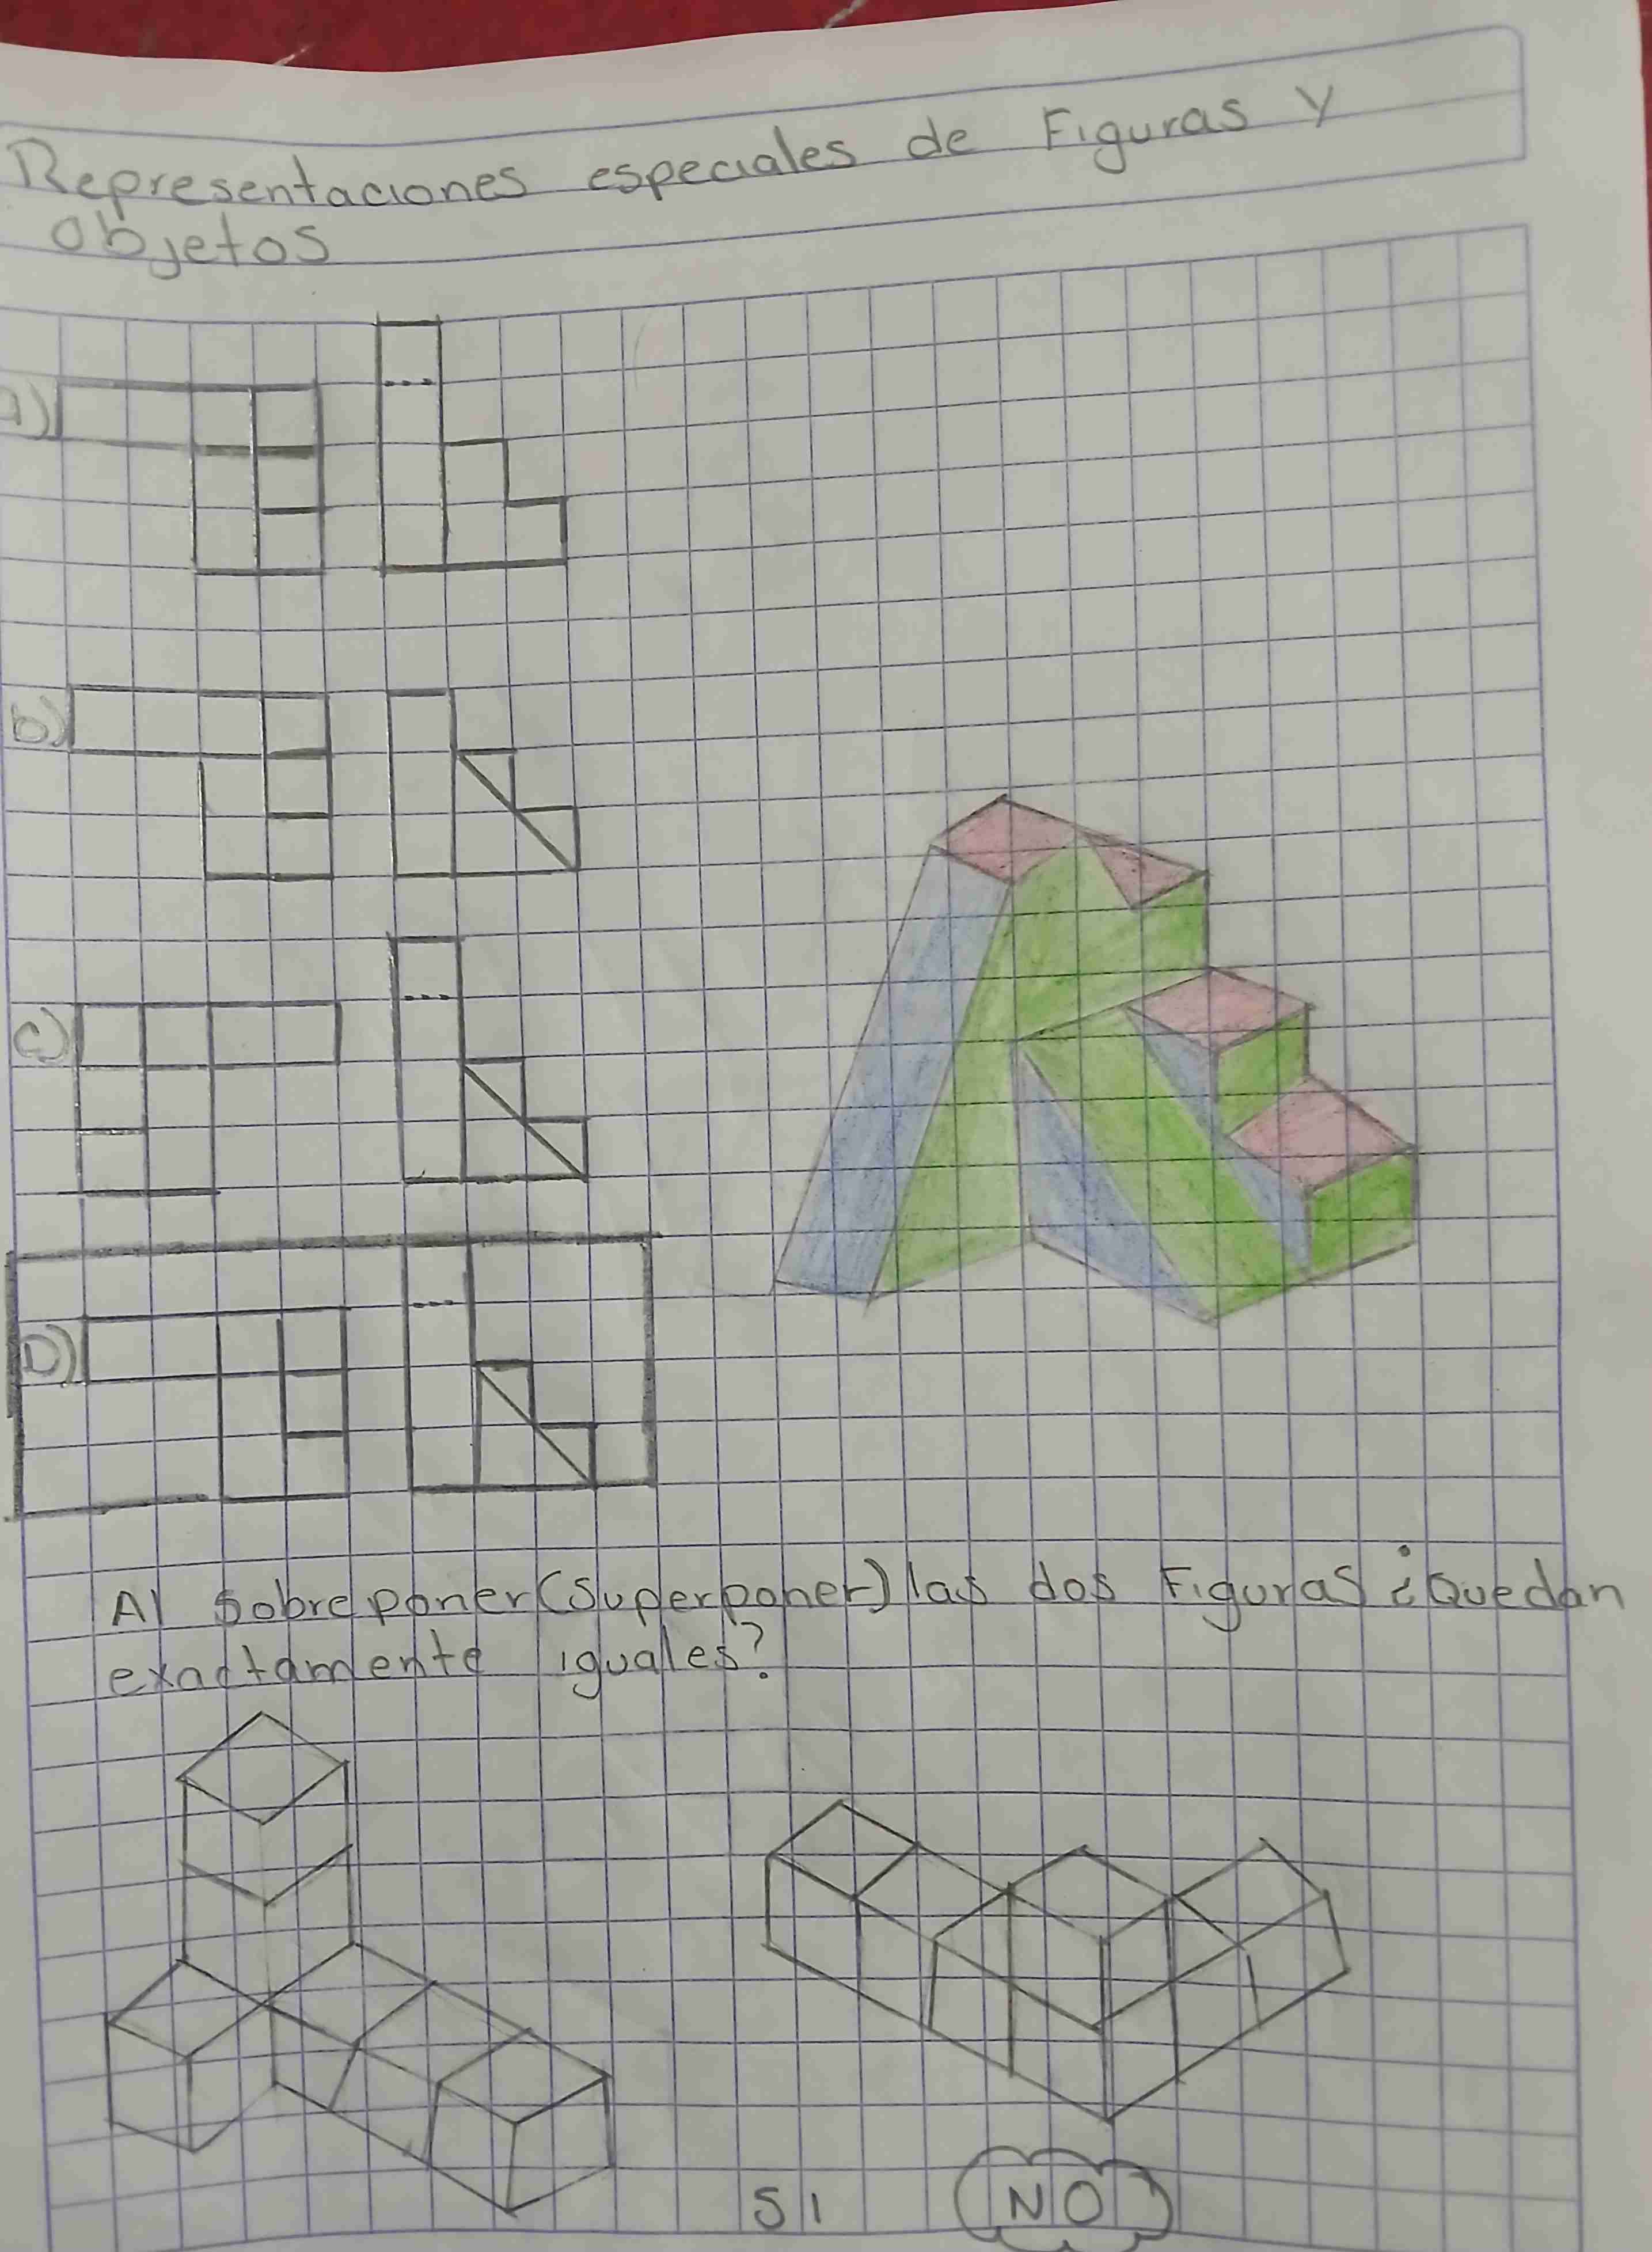 Representaciones especiales de Figuras y
objetos
a)
b)
c)
D)
Al sobreponer(superponer) las dos Figuras ¿Quedan
exactamente iguales?
SI NO